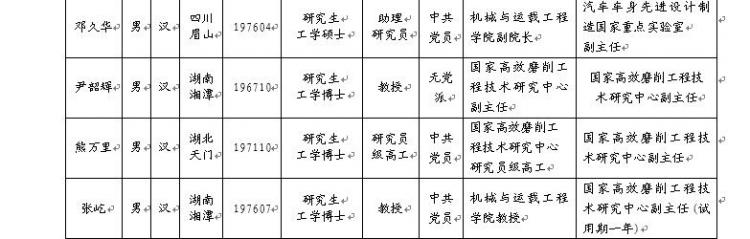 汽车车身先进设计制
邓久华 男 汉 四川 197604 研究生 助理 中共 机械与运载工程 造国家重点实验室
眉山 工学硕士 研究员 党员 学院副院长 副主任
尹韶辉 男 汉 湖南 196710 研究生 教授 无党 国家高效磨削工程 国家高效磨削工程技
湘潭 工学博士 派 程技术研究中心 术研究中心副主任
副主任
熊万里 男 汉 湖北 197110 研究生 研究员 中共 国家高效磨削工 国家高效磨削工程技
天门 工学博士 级高工 党员 程技术研究中心 术研究中心副主任
研究员级高工
张屹 男 汉 湖南 197607 研究生 教授 中共 机械与运载工程 国家高效磨削工程技
湘潭 工学博士 党员 学院教授 术研究中心副主任(试
用期一年)